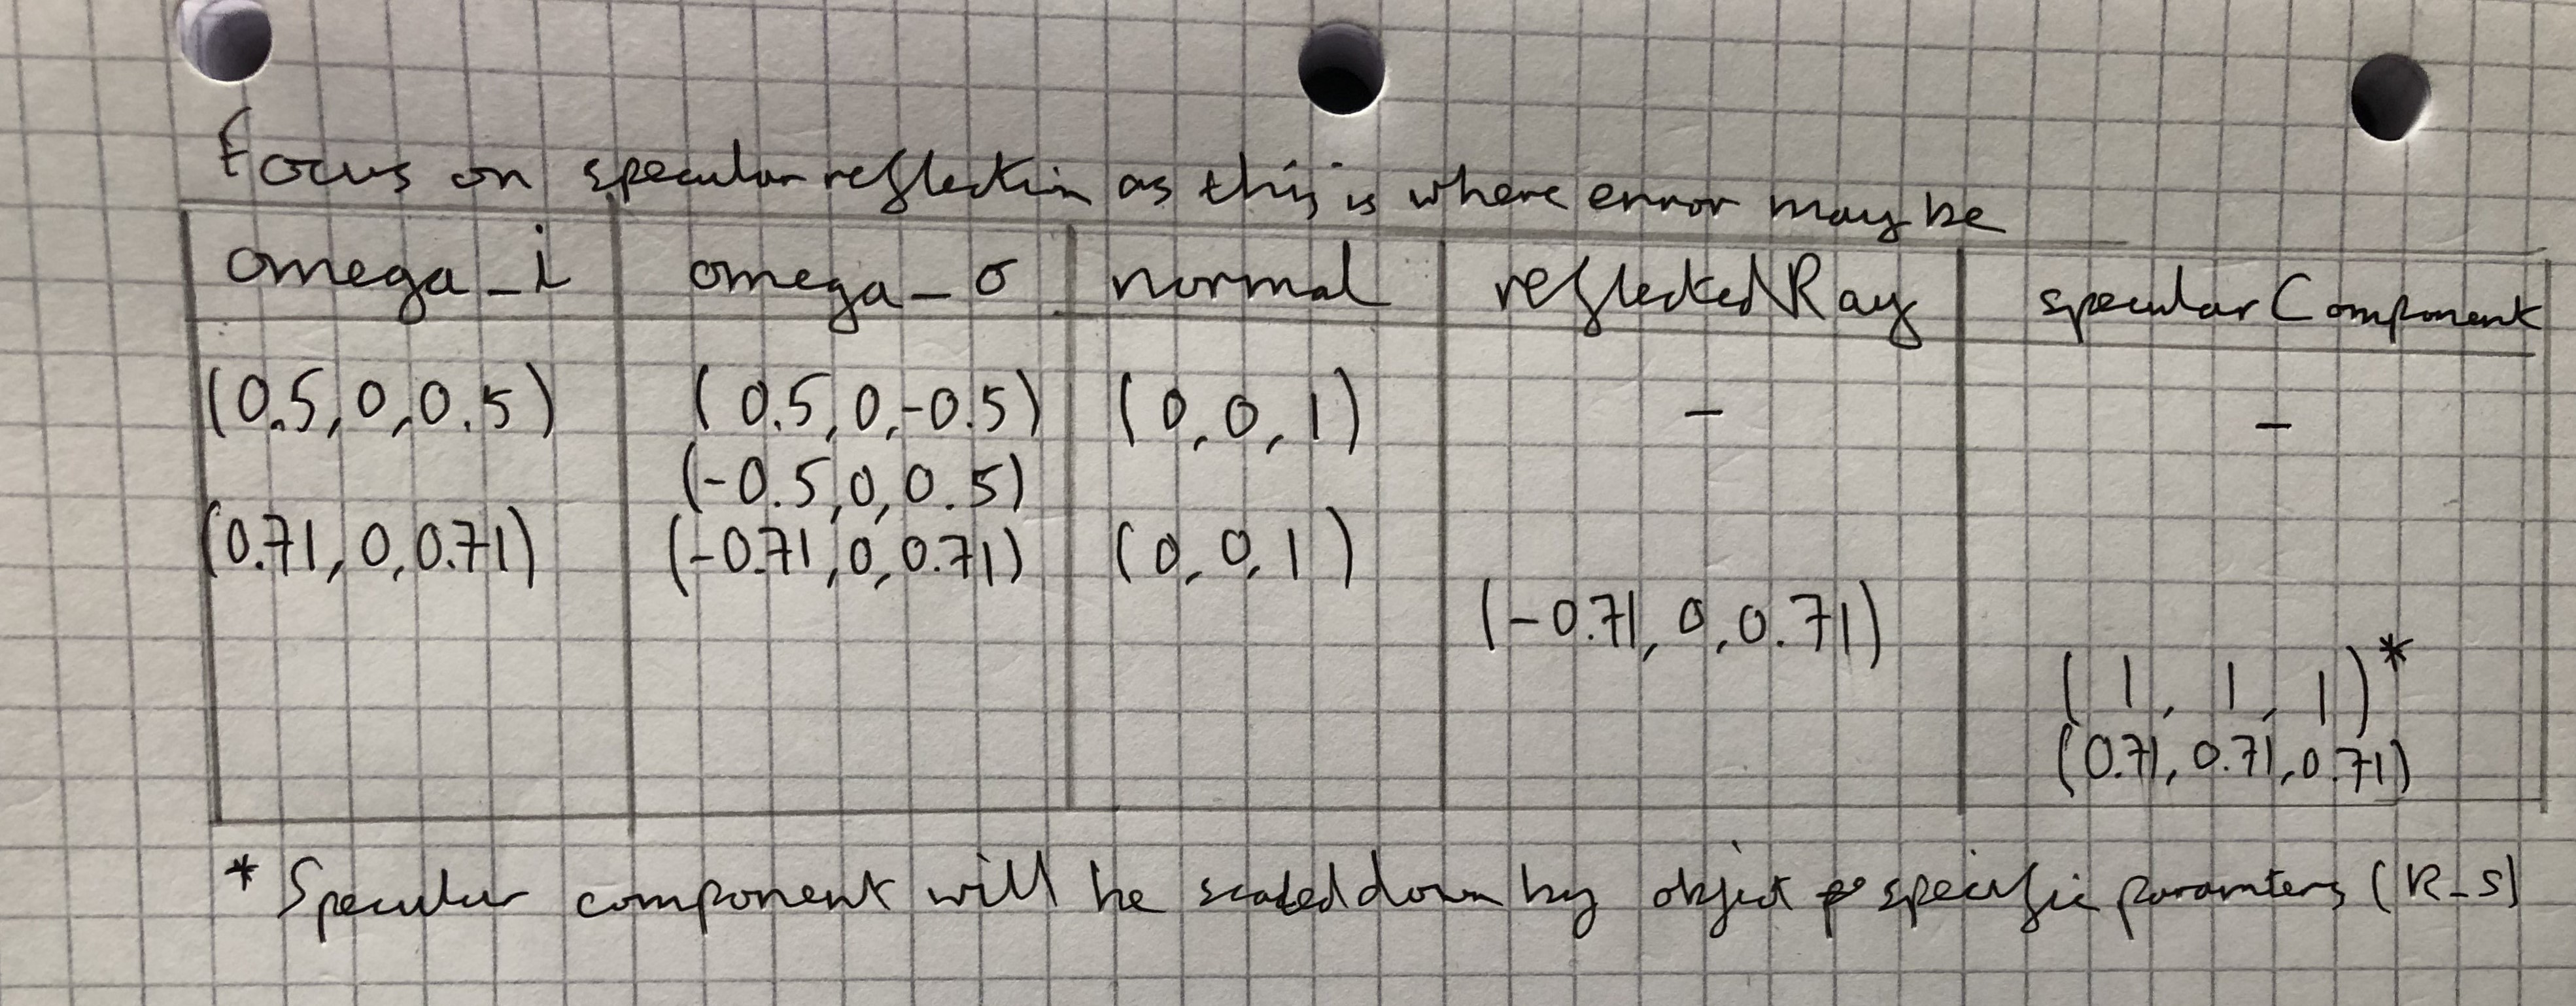 Focus on specular reflection as this is where error may be
omega_i omega_o normal reflectedRay specularComponent
(0.5,0,0.5) (0.5,0,-0.5) (0,0,1) - -
(-0.5,0,0.5)
(0.71,0,0.71) (-0.71,0,0.71) (0,0,1)
(-0.71,0,0.71)
(1,1,1)*
(0.71,0.71,0.71)
* Specular component will be scaled down by object specific paramters (k_s)